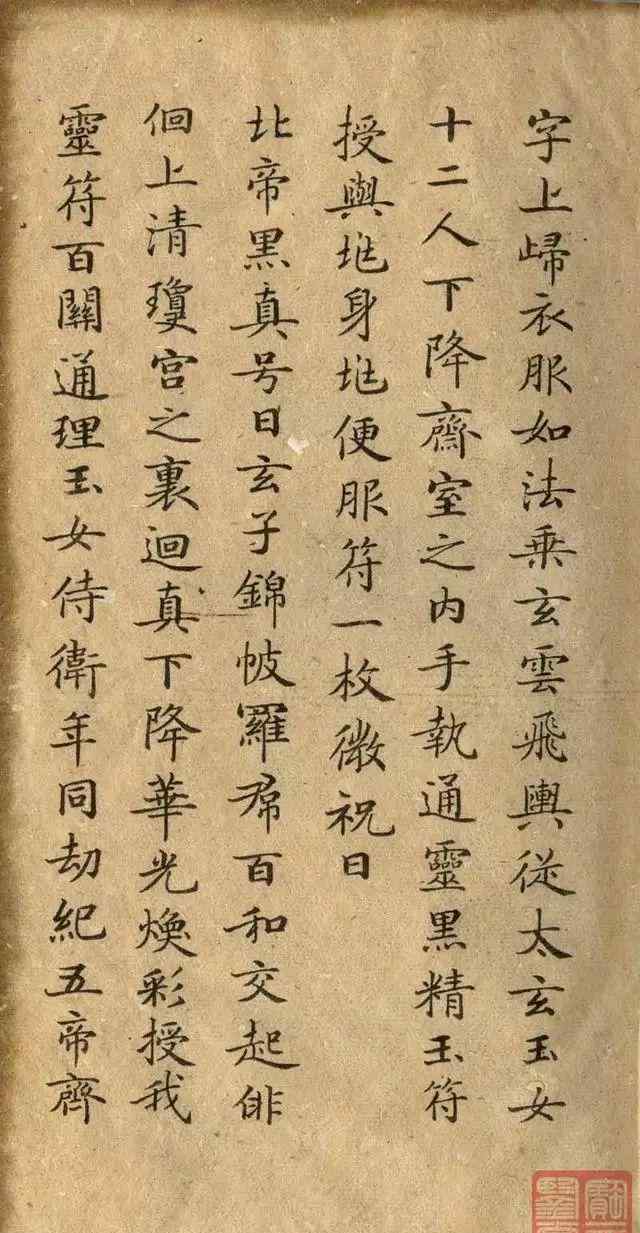 字上歸衣服如法乘玄雲飛輿從太玄玉女
十二人下降齋室之内手執通靈黑精玉符
授與地身地便服符一枚微祝曰
北帝黑真号曰玄子錦帔羅帬百和交起俳
佪上清瓊宫之裏迴真下降華光煥彩授我
靈符百關通理玉女侍衛年同劫紀五帝齊